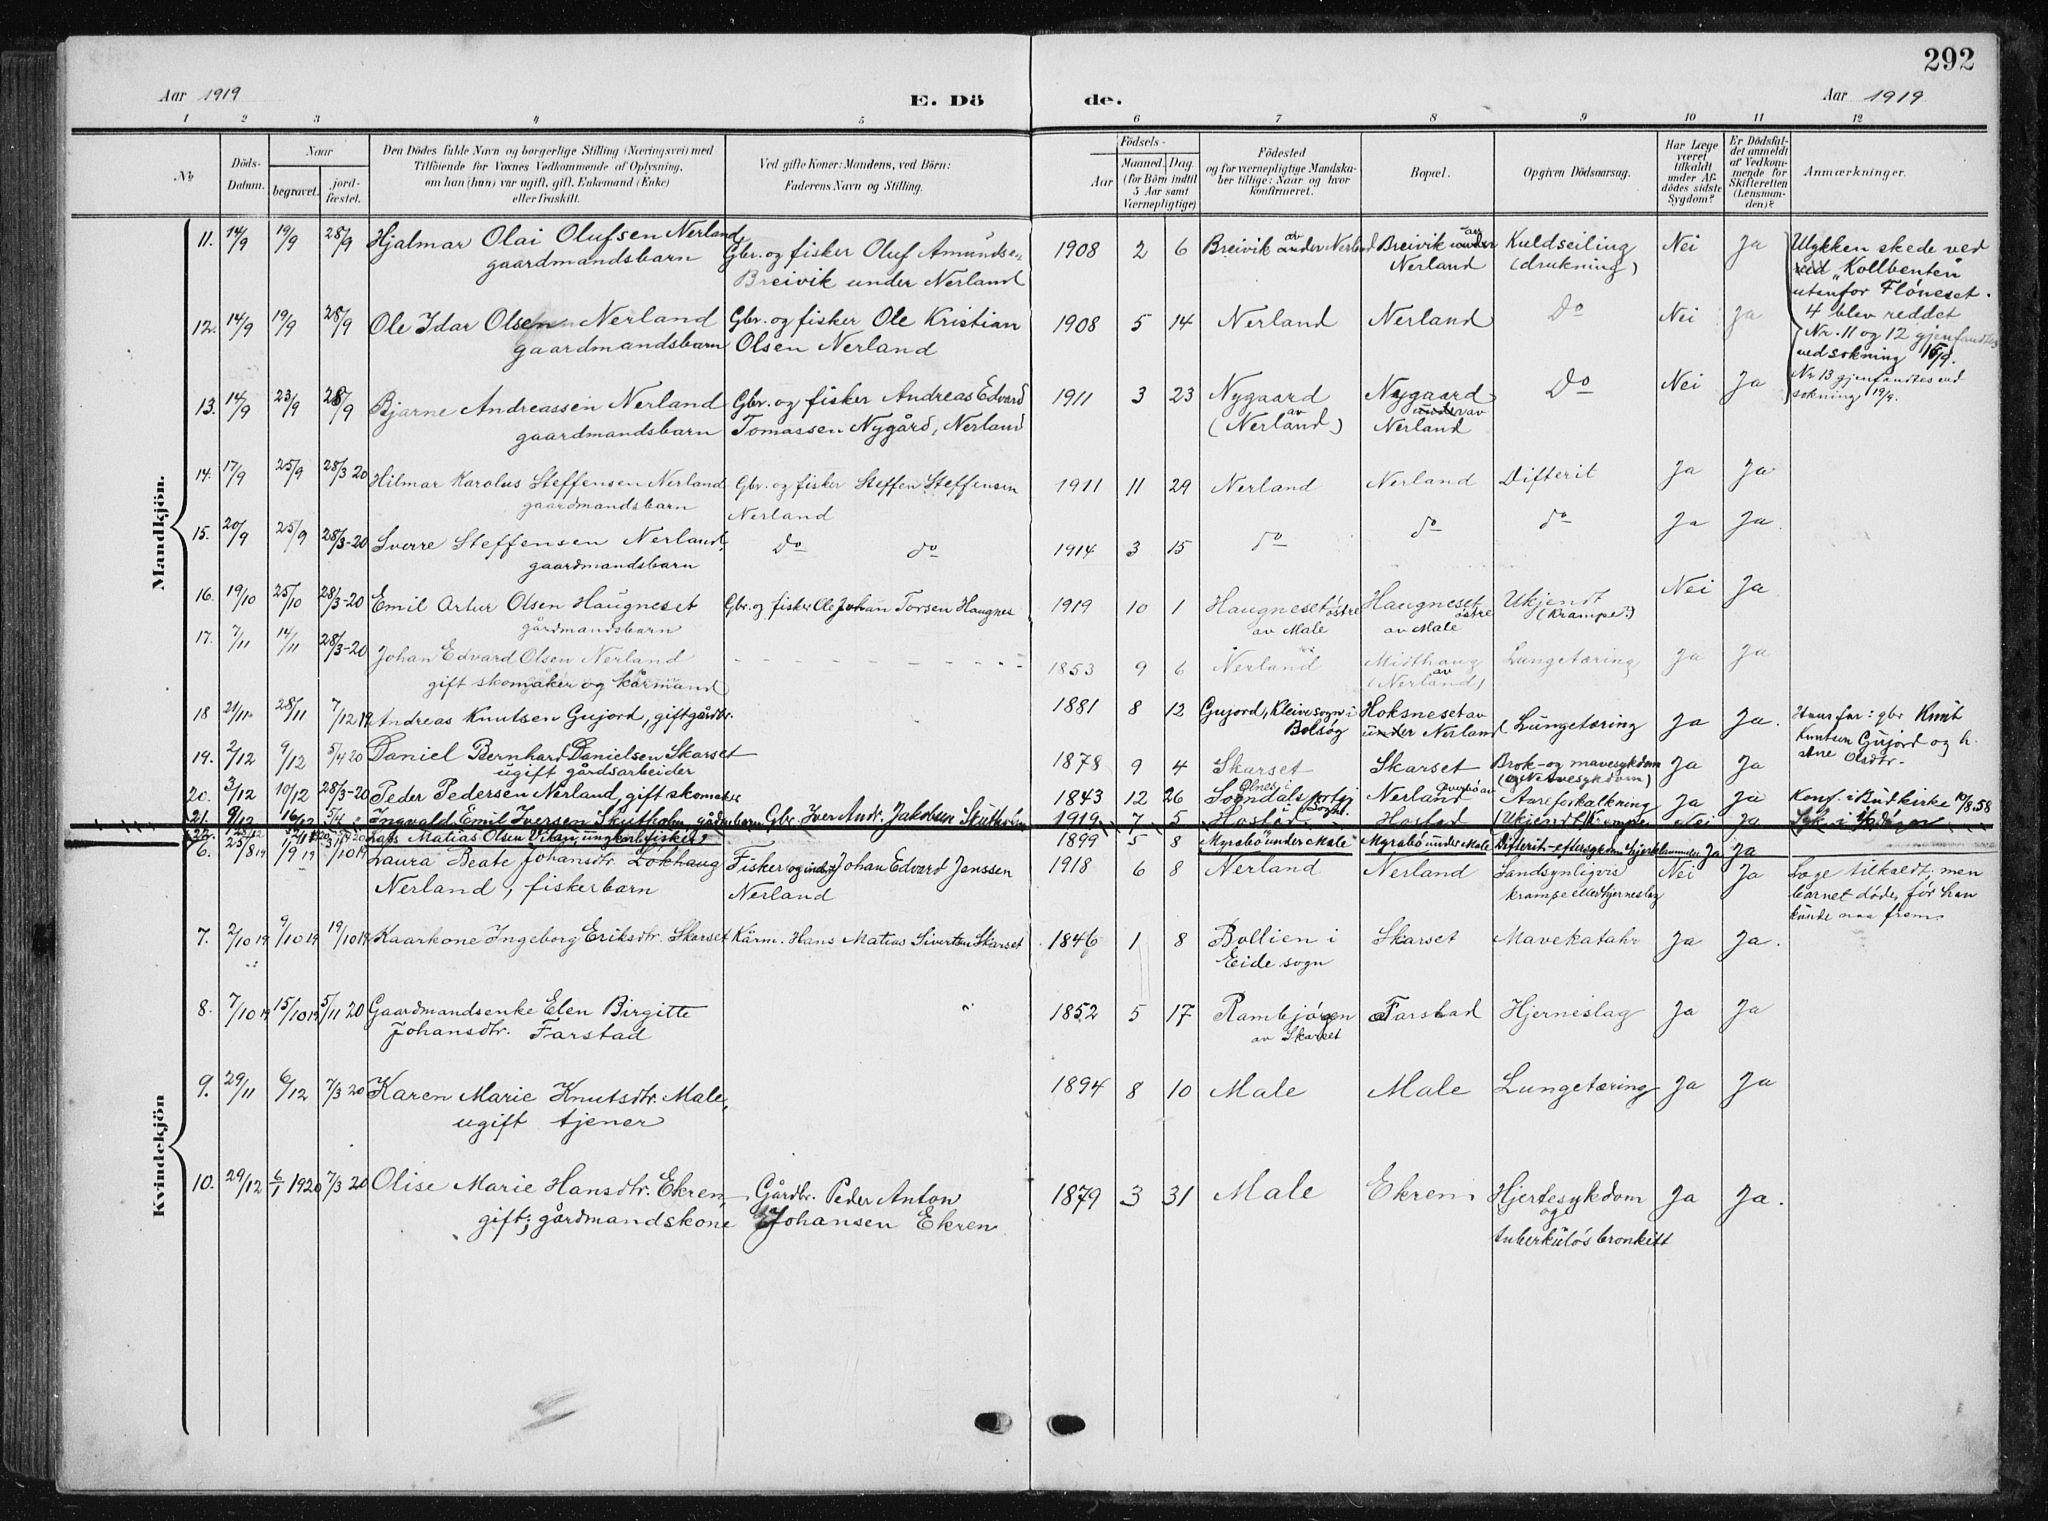 292
Aar 1919
E. Dö
de.
Aar 1919
1 2 3 4 5 6 7 8 9 10 11 12
No.
Döds-Datum.
Naar
begravet.
jord-fæstet.
Den Dödes fulde Navn og borgerlige Stilling (Næringsvei) med
Tilföiende for Voxnes Vedkommende af Oplysning,
om han (hun) var ugift, gift, Enkemand (Enke)
eller fraskilt.
Ved gifte Koner: Mandens, ved Börn:
Faderens Navn og Stilling.
Födsels-
Aar
Maaned. Dag.
(for Börn indtil
5 Aar samt
Værnepligtige)
Födested
og for værnepligtige Mandska-
ber tillige: Naar og hvor
konfirmeret.
Bopæl.
Opgiven Dödsaarsag.
Har Læge
været
tilkaldt
under Af-
dödes sidste
Sygdom?
Er Dödsfal-
det anmeldt
af Vedkom-
mende for
Skifteretten
(Lensman-
den)?
Anmærkninger.
Mandkjön.
11. 14/9 19/9 28/9 Hjalmar Olai Olufsen Nerland, Gbr. og fisker Oluf Amundsen 1908 2 6 Breivik av under Nerland Breivik av under Kuldseiling Nei Ja Ulykken skede ved
gaardmandsbarn Breivik under Nerland Nerland (drukning) ved "Kollbenten"
utenfor Flöneset.
12. 14/9 19/9 28/9 Ole Idar Olsen Nerland Gbr. og fisker Ole Kristian 1908 5 14 Nerland Nerland Do Nei Ja 4 blev reddet
gaardmandsbarn Olsen Nerland Nr. 11 og 12 gjenfandtes
ved sokning 15/9.
13. 14/9 23/9 28/9 Bjarne Andreassen Nerland Gbr. og fisker Andreas Edvard 1911 3 23 Nygaard Nygaard Do Nei Ja Nr 13 gjenfandtes ved
gaardmandsbarn Tomassen Nygård, Nerland av (Nerland) under av Nerland sokning 19/9.
14. 17/9 25/9 28/3 20 Hilmar Karolus Steffensen Nerland Gbr. og fisker Steffen Steffensen 1911 11 29 Nerland Nerland Difterit Ja Ja
gaardmandsbarn Nerland
15. 20/9 25/9 28/3-20 Sverre Steffensen Nerland, Do do 1914 3 15 do do do Ja Ja
gaardmandsbarn
16. 19/10 25/10 28/3-20 Emil Artur Olsen Haugneset Gbr. og fisker Ole Johan Torsen Haugnes 1919 10 1 Haugneset östre Haugneset östre Ukjendt Nei Ja
gårdmandsbarn av Male av Male (Krampe?)
17. 7/11 14/11 28/3-20 Johan Edvard Olsen Nerland - - - - - - - - 1853 9 6 Nerland Midthaug Lungetæring Ja Ja
gift skomaker og kårmand av (Nerland)
18 21/11 28/11 7/12 19 Andreas Knutsen Gujord, gift gårdbr. 1881 8 12 Gujord, Kleive sogn i Hoksneset av Lungetæring Ja Ja. Hans far: gbr Knut
Bolsøy under Nerland Knutsen Gujord og h.
19. 2/12 9/12 5/4 20 Daniel Bernhard Danielsen Skarset 1878 9 4 Skarset Skarset Brok- og mavesykdom Ja Ja
ugift gårdsarbeider (og Nervesykdom)
20. 3/12 10/12 28/3-20 Peder Pedersen Nerland, gift skomaker 1843 12 26 Nerland Aareforkalkning Ja Ja Konf. i Bud kirke 10/8.58
21. 9/12 16/12 5/4 Ingvald Emil Iversen Skutholm, gårdmbarn Gbr. Iver Andr. Jakobsen Skutholm 1919 7 5 Hostad Hostad (Ukjendt) Krampe Nei Ja
22. Lars Matias Olsen Vikan, ungkarl fisker 1899 5 8 Myrabö under Male Myrabö under Male Difterit-eftersykdom Ja Ja
Kvindekjön
6. 25/8 19 1/9 19 /10 19 Laura Beate Johansdtr. Lökhaug Fisker Johan Edvard Jenssen 1918 6 8 Nerland Nerland Sandsynligvis Nei Ja Læge tilkaldt, men
Nerland, fiskerbarn Nerland krampe eller hjerneslag barnet döde, för han
kunde naa frem.
7. 2/10 19 9/10 19 19/10 19 Kaarkone Ingeborg Eriksdtr. Skarset Kårm. Hans Matias Sivertsen Skarset 1846 1 8 Bollien i Skarset Mavekatahr Ja Ja.
Eide sogn
8. 7/10 19 15/10 19 5/11 20 Gaardmandsenke Elen Birgitte " 1852 5 17 Rambjørgen Farstad Hjerneslag Ja Ja
Johansdtr. Farstad av Skarset
9. 29/11 6/12 7/3 20 Karen Marie Knutsdtr. Male, 1894 8 10 Male Male Lungetæring Ja Ja
ugift tjener
10. 29/12 6/1 1920 7/3 20 Olise Marie Hansdtr. Ekren, Gårdbr. Peder Anton 1879 3 31 Male Ekren Hjertesykdom Ja Ja.
gift; gårdmandskone Johansen Ekren og
tuberkuløs bronkitt